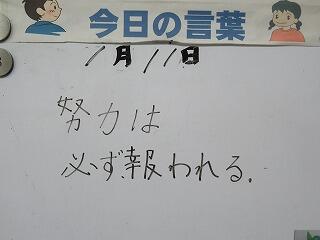 今日の言葉
1月11日
努力は
必ず報われる.